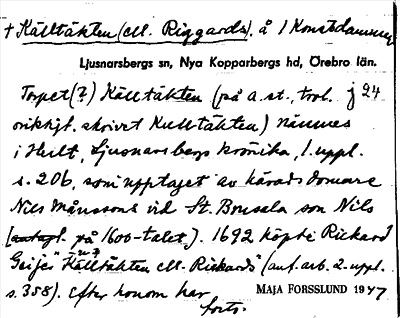 + Källtäkten (ell. Riggards). å 1 Konstdammen
Ljusnarsbergs sn, Nya Kopparbergs hd, Örebro län.
Torpet (?) Källtäkten (på a. st., trol. j 24
oriktigt. skrivet Kulltäkten) nämnes
i Hult, Ljusnarsbergs krönika, 1. uppl.
s. 206, som upptaget av häradsdomare
Nils Månssons vid St. Bonsala son Nils
(antagl. på 1600-talet). 1692 köpte Rickard
Geijer "Källtäkten ell. Rickards" (anf. arb. 2. uppl.
s. 358). Efter honom har
forts.
MAJA FORSSLUND 1947